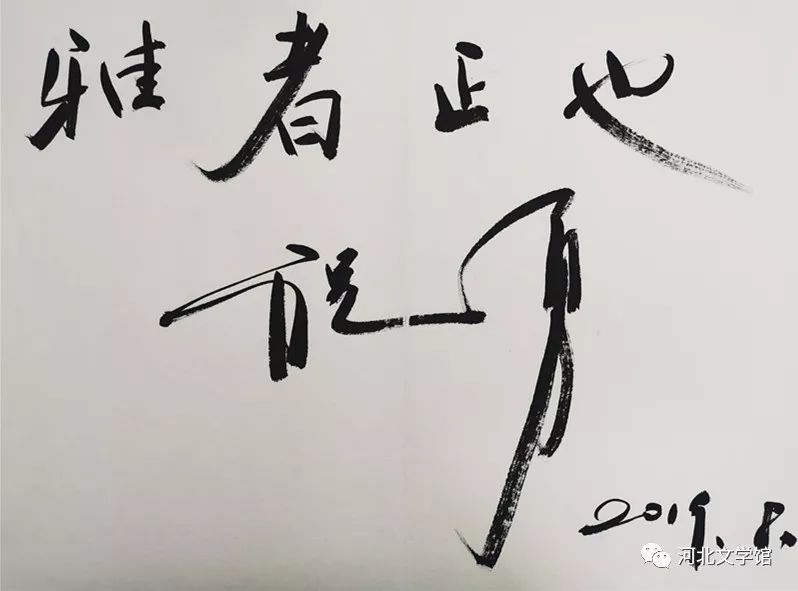 雅者正也
2019.8.
河北文学馆